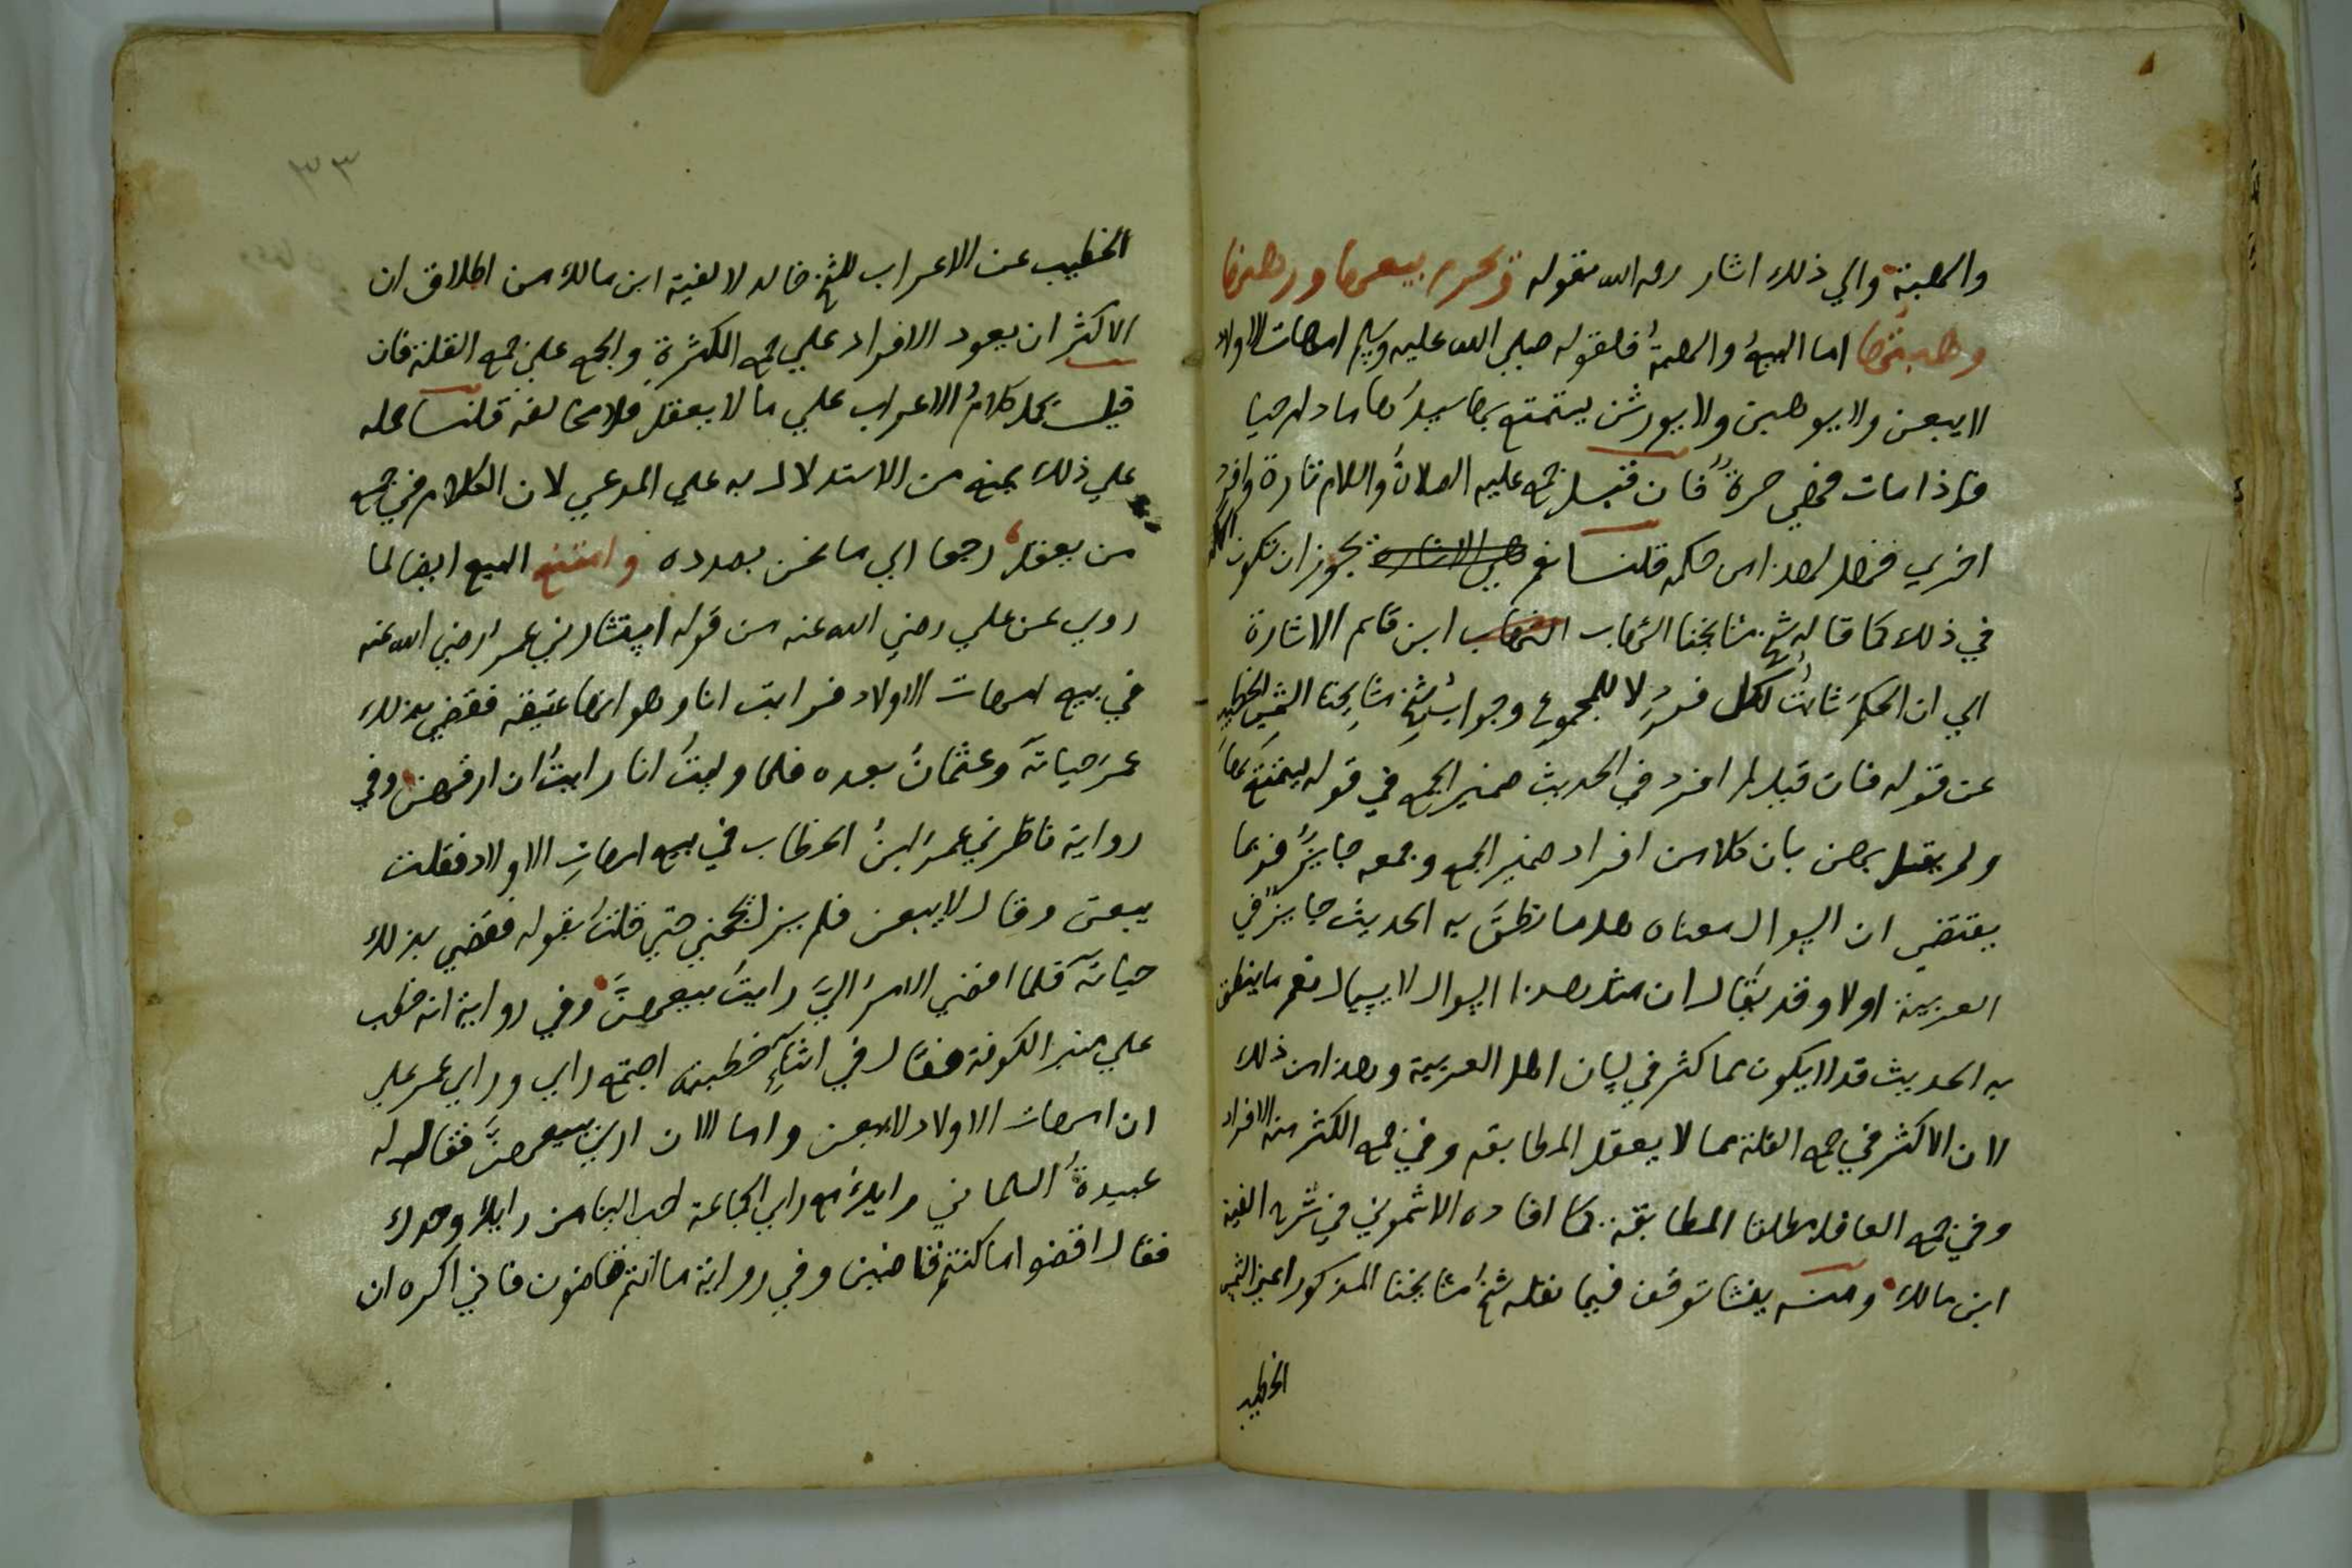 والهبة والي ذلك اشار رحمه الله بقوله وتحرم بيعها ورهنها
وهبتها اما البيع والهبة فلقوله صلي الله عليه وسلم امهات الاولاد
لا يبعن ولا يوهبن ولا يورثن يستمتع بها سيدها ما دام حيا
فاذا مات فهي حرة فان قيل جمع عليه الصلاة والسلام تارة وافرد
اخري فهل لهذا من حكمه قلنا نعم يجوز ان تكون الحكمة
في ذلك كما قاله شيخ مشايخنا الشهاب ابن قاسم الاشارة
الي ان الحكم ثابت لكل فرد لا للمجموع وجواب شيخ مشايخنا الشمس الخطيب
عن قوله فان قيل لم افرد في الحديث ضمير الجمع في قوله يستمتع بها
ولم يقل بهن بان كلا من افراد ضمير الجمع وجمعه جايز فربما
يقتضي ان السوال معناه هل ما نطق به الحديث جايز في
العربية اولا وقد يقال ان مثل هذا السوال لا يسال نعم ما ينطق
به الحديث قد لا يكون مما كثر في لسان اهل العربية وهذا من ذلك
لان الاكثر في جمع القلة مما لا يعقل المطابقه وفي جمع الكثرة منه الافراد
وفي جمع العاقل مطلقا المطابقة كما افاده الاشموني في شرح الفية
ابن مالك ومنه ينشا توقف فيما نقله شيخ مشايخنا المذكور اعني الشمس
الخطيب
٣٣
الخطيب عن الاعراب للشيخ خالد لالفية ابن مالك من اطلاق ان
الاكثر ان يعود الافراد علي جمع الكثرة والجمع علي جمع القلة فان
قيل يحمل كلام الاعراب علي ما لا يعقل فلا مخالفة قلنا حمله
علي ذلك يمنع من الاستدلال به علي المدعي لان الكلام في جمع
من يعقل رجعنا الي ما نحن بصدده وامتنع البيع ايضا لما
روي عن علي رضي الله عنه من قوله استشارني عمر رضي الله عنه
في بيع امهات الاولاد فرايت انا وهو انها عتيقه فقضي بذلك
عمر حياته وعثمان بعده فلما وليت انا رايت ان ارقهن وفي
رواية ناظرني عمر ابن الخطاب في بيع امهات الاولاد فقلت
يبعن وقال لا يبعن فلم يزل حتي قلت بقوله فقضي بذلك
حياته فلما افضي الامر الي رايت بيعهن وفي رواية انه خطب
علي منبر الكوفة فقال في اثناء خطبته اجتمع رايي وراي عمر علي
ان امهات الاولاد لا يبعن واما الان اري بيعهن فقال له
عبيدة السلماني رايك مع راي الجماعة احب الينا من رايك وحدك
فقال اقضوا ما كنتم قاضين وفي رواية ما انتم قاضون فاني اكره ان